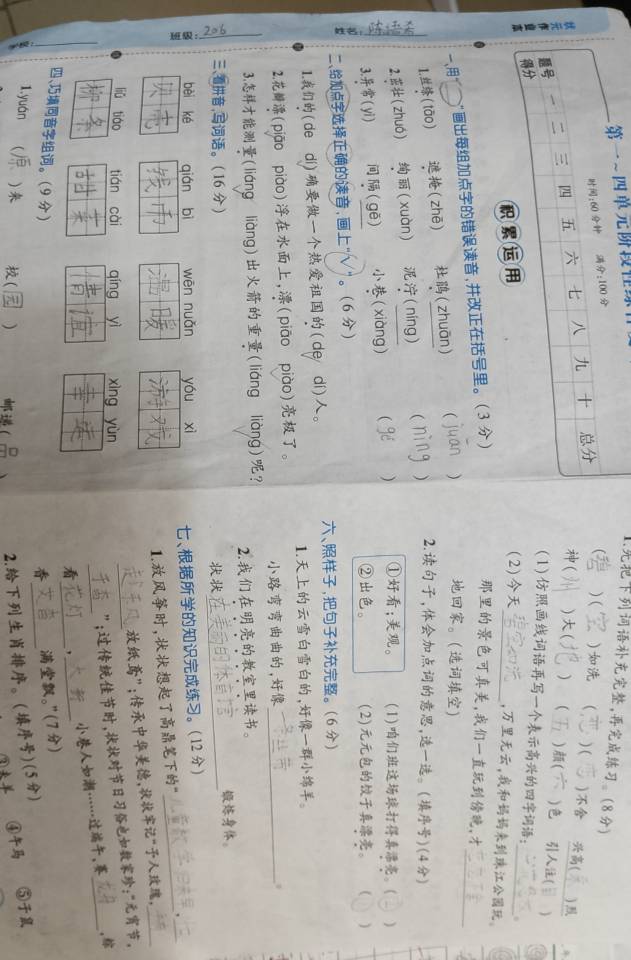 第一~四单元阶段性综合
时间:60分钟 满分:100分
题号 一 二 三 四 五 六 七 八 九 十 总分
得分
积累运用
一、用“ ”画出每组加点字的错误读音,并改正在括号里。(3分)
1.丝绦(tāo) 遮掩(zhē) 杜鹃(zhuān) (juān)
2.茁壮(zhuó) 绚丽(xuàn) 泥泞(níng) (nìng)
3.异常(yì) 间隔(gē) 小巷(xiàng) (gé)
二、给加点字选择正确的读音,画上“√”。(6分)
1.我们的(de dí)确要做一个热爱祖国的(de dí)人。
2.花瓣漂(piāo piào)浮在水面上,漂(piāo piào)亮极了。
3.怎样才能测量(liáng liàng)出火箭的重量(liáng liàng)呢?
三、看拼音,写词语。(16分)
bèi ké qián bì wēn nuǎn yóu xì
贝壳 钱币 温暖 游戏
liǔ tiáo tián cài qíng yì xìng yùn
柳条 甜菜 情谊 幸运
四、巧填同音字组词。(9分)
1.yuán (原)来 校(园) 邮递(
班级:206
1.先把下列词语补充完整,再完成练习。(8分)
( )(空)如洗 (恋)(恋)不舍 兴高( )烈
神(州)大(地) (五)颜(六)色 引人注(目)
(1)仿照画线词语再写一个表示高兴的四字词语:
(2)今天碧空如洗,万里无云,我和妈妈来到珠江公园玩。
那里的景色可真美,我们一直玩到傍晚,才
地回家。(选词填空)
2.读句子,体会加点词的意思,选一选。(填序号)(4分)
①好看;美观。 (1)咱们班这场球打得真漂亮。(②)
②出色。 (2)元元包的饺子真漂亮。( )
六、照样子,把句子补充完整。(6分)
1.天上的云雪白雪白的,好像一群小绵羊。
小路弯弯曲曲的,好像一条丝带。
2.我们在明亮的教室里读书。
状状在美丽的体育馆锻炼身体。
七、根据所学的知识完成练习。(12分)
1.放风筝时,状状想起了高鼎笔下的“儿童散学归来早,忙
趁东风放纸鸢”;传承中华美德,状状牢记“予人玫瑰,
手 香”;过传统佳节时,状状对节日习俗也如数家珍:“元宵节,
看花灯, 小巷人如潮……过端午,赛龙舟,粽
香艾香满堂飘。”(7分)
2.给下列生肖排序。(填序号)(5分)
③未羊 ④午马 ⑤子鼠